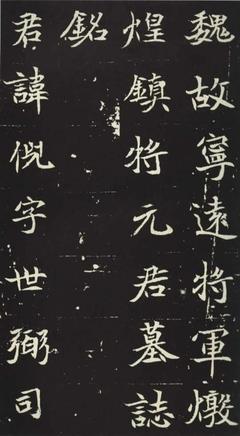 魏故寧遠将軍燉
煌鎮将元君墓誌
銘
君諱倪字世弼司